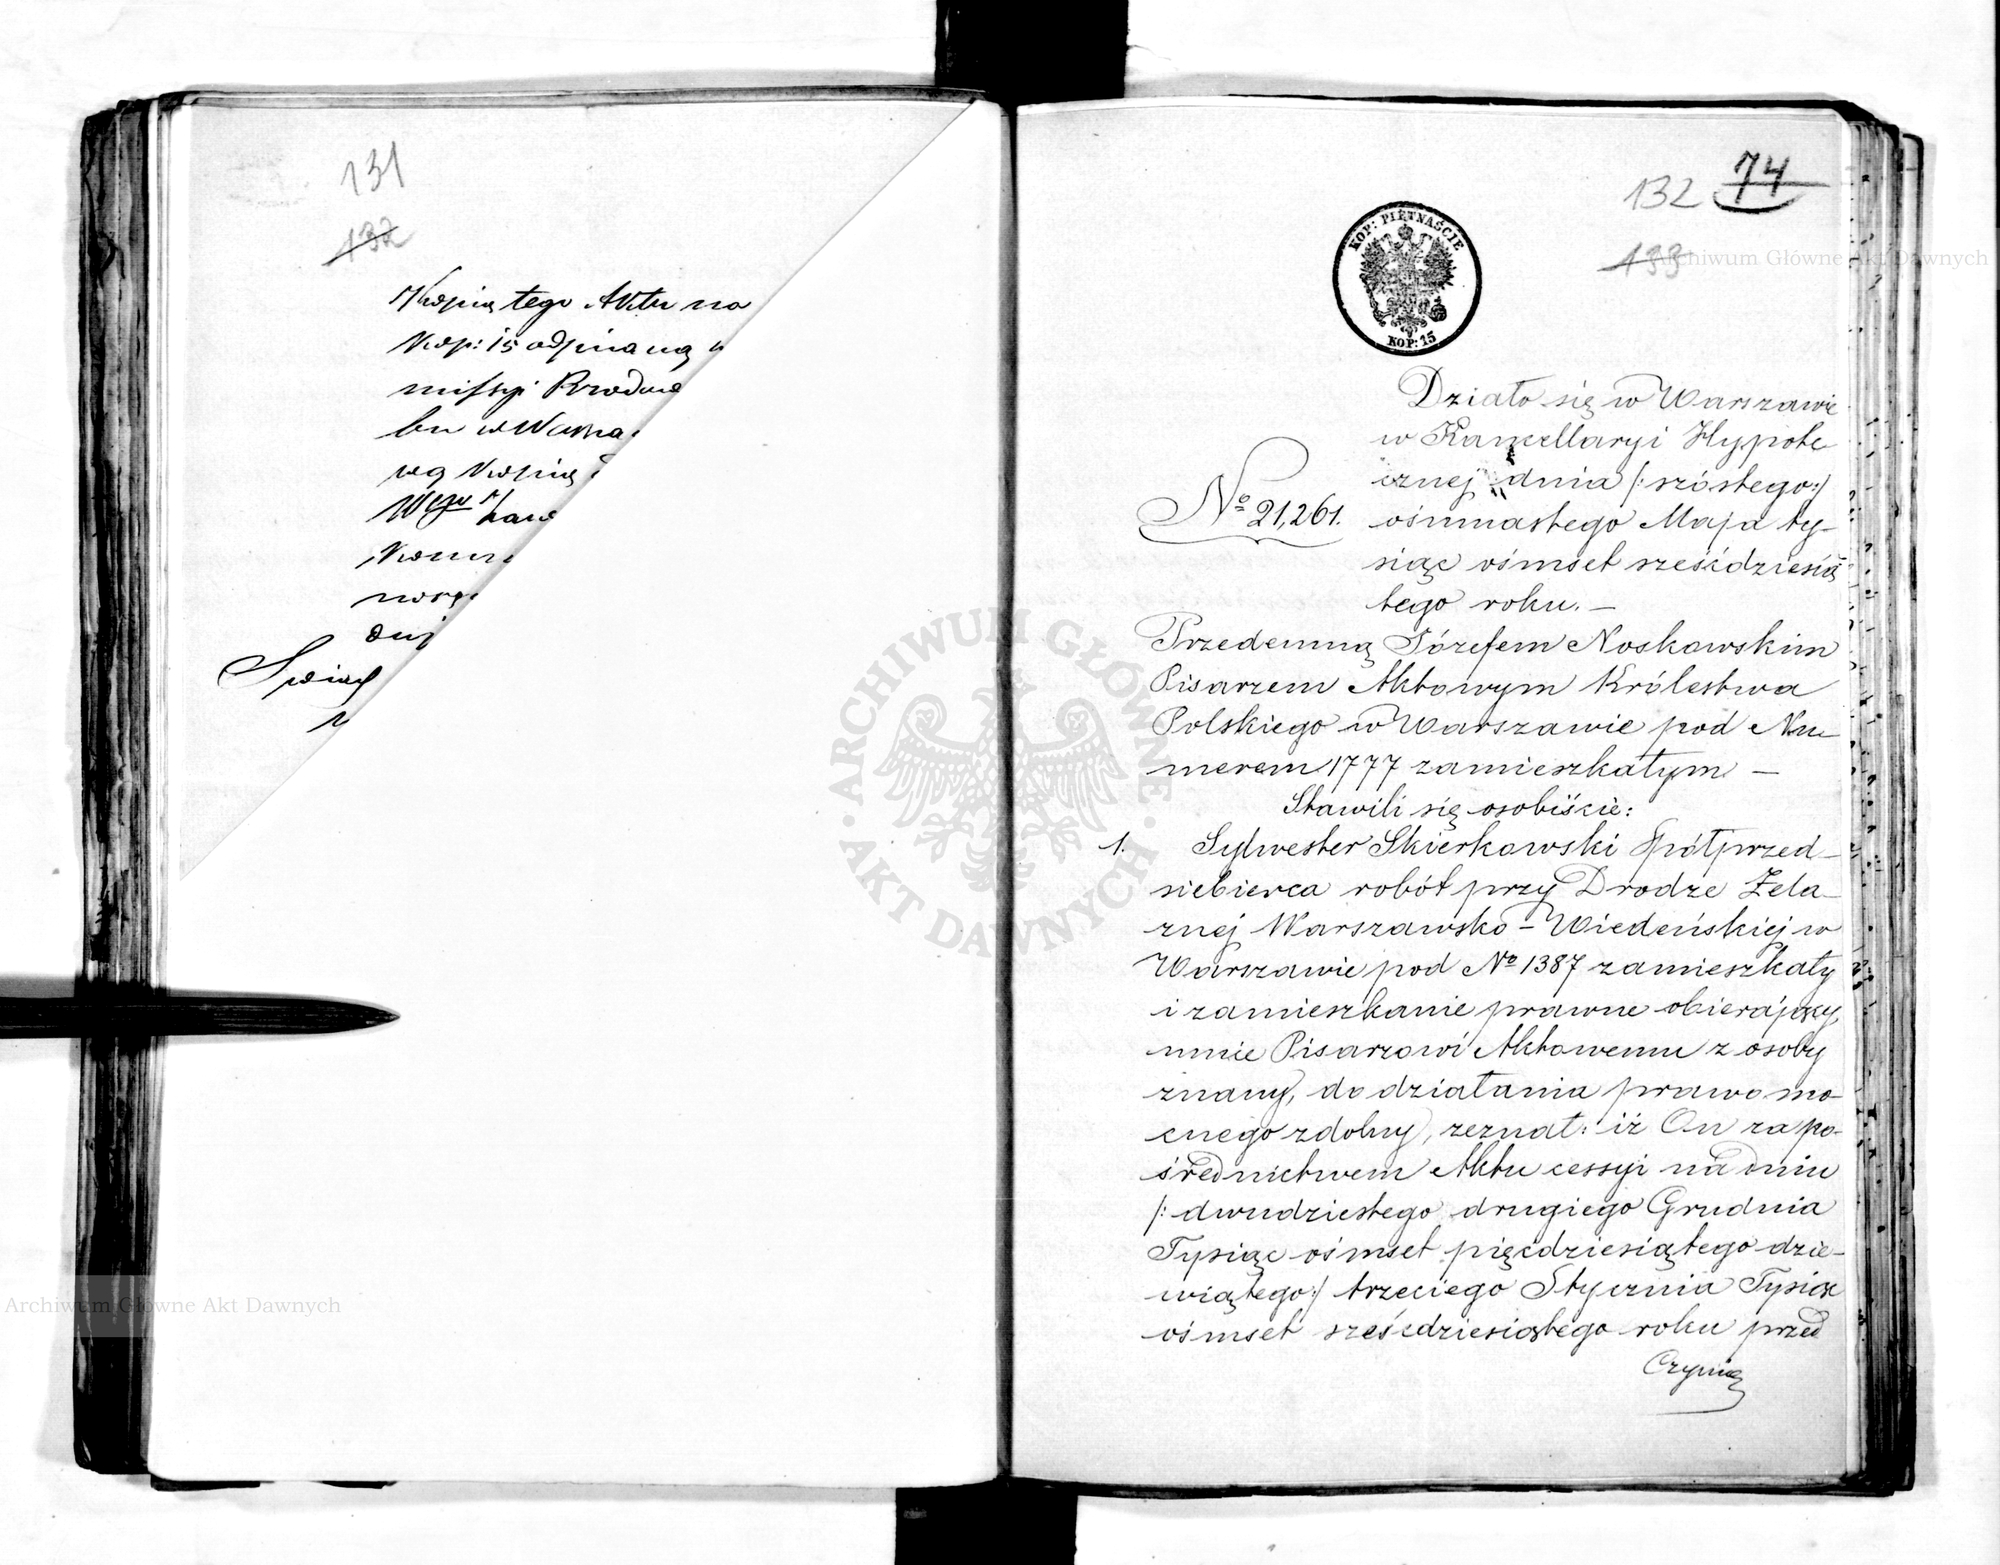 131
132
Kopią tego Aktu na
kop: 15
missyi Rządowe
w Warsza
Kopią
Świad
132 74
133
KOP: PIĘTNAŚCIE
KOP: 15
Działo się w Warszawie
w Kancellaryi Hypote
cznej dnia /: szóstego :/
ośmnastego Maja ty-
siąc ośmset sześćdziesią
tego roku. —
№ 21,261.
Przedemną Józefem Noskowskim
Pisarzem Aktowym Królestwa
Polskiego w Warszawie pod Nu-
merem 1777 zamieszkałym —
Stawili się osobiście:
1. Sylwester Skierkowski Spółprzed-
siebierca robót przy Drodze Żela-
znej Warszawsko-Wiedeńskiej w
Warszawie pod № 1387 zamieszkały
i zamieszkanie prawne obierający,
mnie Pisarzowi Aktowemu z osoby
znany, do działania prawomo-
cnego zdolny, zeznał: iż On za po-
średnictwem Aktu cessyi na dniu
/: dwudziestego drugiego Grudnia
Tysiąc ośmset pięćdziesiątego dzie-
wiątego :/ trzeciego Stycznia Tysiąc
ośmset sześćdziesiątego roku przed
Czynią
ARCHIWUM GŁÓWNE · AKT DAWNYCH ·
Archiwum Główne Akt Dawnych
Archiwum Główne Akt Dawnych